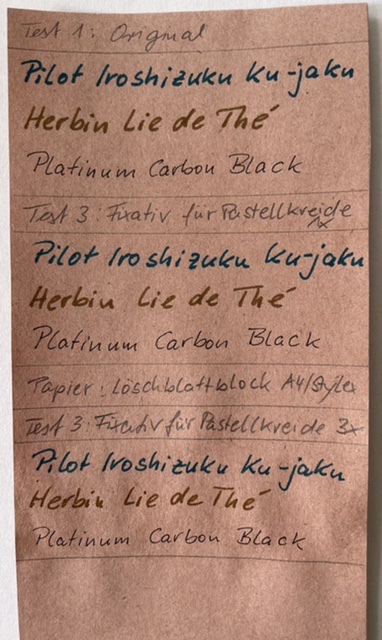 Test 1: Original
Pilot Iroshizuku Ku-jaku
Herbin Lie de Thé
Platinum Carbon Black
Test 3: Fixativ für Pastellkreide
1x
Pilot Iroshizuku Ku-jaku
Herbin Lie de Thé
Platinum Carbon Black
Papier: Löschblattblock A4/Stylex
Test 3: Fixativ für Pastellkreide 3x
Pilot Iroshizuku Ku-jaku
Herbin Lie de Thé
Platinum Carbon Black